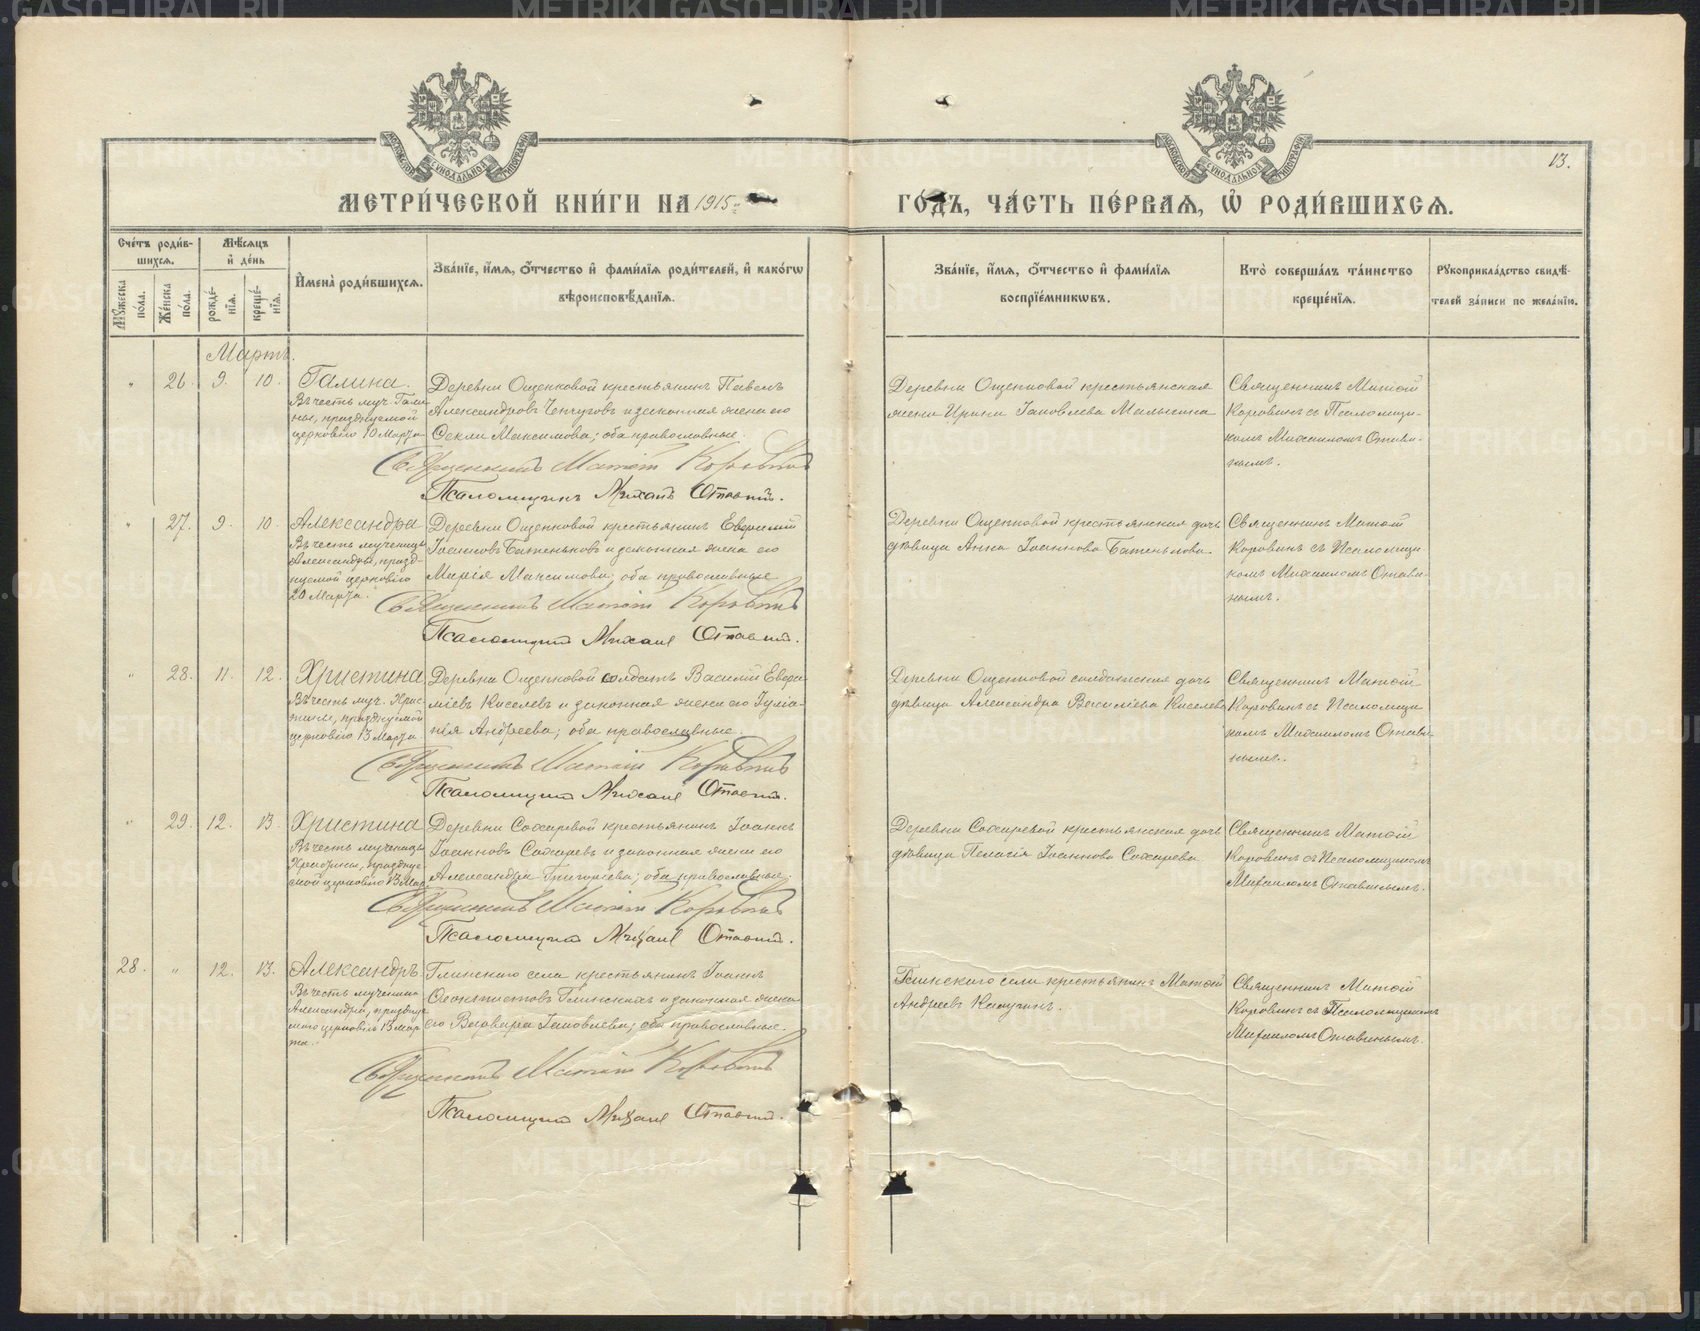 13.
МЕТРИ́ЧЕСКОЙ КНИ́ГИ НА 1915 ГО́ДЪ, ЧА́СТЬ ПЕ́РВАЯ, Ѡ҆ РОДИ́ВШИХСЯ.
Сче́тъ роди́в-
шихся.
Мѣ́сяцъ
и҆ де́нь
И҆мена̀ роди́вшихся.
Зва́нїе, и҆́мя, о҆́тчество и҆ фами́лїя роди́телей, и҆ како́гѡ
вѣроисповѣ́данїя.
Зва́нїе, и҆́мя, о҆́тчество и҆ фами́лїя
воспрїе́мникѡвъ.
Кто̀ соверша́лъ та́инство
креще́нїя.
Рꙋкоприкла́дство свидѣ́-
телей за́писи по жела́нїю.
Мꙋ́жеска
по́ла.
Же́нска
по́ла.
рожде́-
нїя.
креще́-
нїя.
Мартъ.
" 26. 9. 10. Галина.
Въ честь муч. Гали-
ны, празднуемой
церковію 10 Марта
Деревни Ощепковой крестьянинъ Павелъ
Александровъ Чепчуговъ и законная жена его
Ѳекла Максимова; оба православные.
Священникъ Матѳій Коровинъ
Псаломщикъ Михаилъ Отавинъ.
Деревни Ощепковой крестьянская
жена Ирина Іаковлева Малыгина
Священникъ Матѳій
Коровинъ съ Псаломщи-
комъ Михаиломъ Отави-
нымъ.
" 27. 9. 10. Александра
Въ честь мученицы
Александры, празд-
нуемой церковію
20 Марта.
Деревни Ощепковой крестьянинъ Евѳимій
Іоанновъ Батеньковъ и законная жена его
Марія Максимова; оба православные
Священникъ Матѳій Коровинъ
Псаломщикъ Михаилъ Отавинъ.
Деревни Ощепковой крестьянская дочь
дѣвица Анна Іоаннова Батенькова.
Священникъ Матѳій
Коровинъ съ Псаломщи-
комъ Михаиломъ Отави-
нымъ.
" 28. 11. 12. Христина
Въ честь муч. Хрис-
тины, празднуемой
церковію 13 Марта.
Деревни Ощепковой солдатъ Василій Евѳи-
міевъ Киселевъ и законная жена его Іуліа-
нія Андреева; оба православные.
Священникъ Матѳій Коровинъ
Псаломщикъ Михаилъ Отавинъ.
Деревни Ощепковой солдатская дочь
дѣвица Александра Василіева Киселева
Священникъ Матѳій
Коровинъ съ Псаломщи-
комъ Михаиломъ Отави-
нымъ.
" 29. 12. 13. Христина
Въ честь мученицы
Христины, праздну-
емой церковію 13 Мар.
Деревни Сохаревой крестьянинъ Іоаннъ
Іоанновъ Сохаревъ и законная жена его
Александра Григоріева; оба православные.
Священникъ Матѳій Коровинъ
Псаломщикъ Михаилъ Отавинъ.
Деревни Сохаревой крестьянская дочь
дѣвица Пелагія Іоаннова Сохарева.
Священникъ Матѳій
Коровинъ съ Псаломщикомъ
Михаиломъ Отавинымъ.
28. " 12. 13. Александръ.
Въ честь мученика
Александра, праздну-
емаго церковію 13 Мар-
та.
Глинскаго села крестьянинъ Іоаннъ
Ѳеоктистовъ Глинскихъ и законная жена
его Варвара Іаковлева; оба православные.
Священникъ Матѳій Коровинъ
Псаломщикъ Михаилъ Отавинъ.
Глинскаго села крестьянинъ Матѳій
Андреевъ Калугинъ.
Священникъ Матѳій
Коровинъ съ Псаломщикомъ
Михаиломъ Отавинымъ.
METRIKI.GASO-URAL.RU